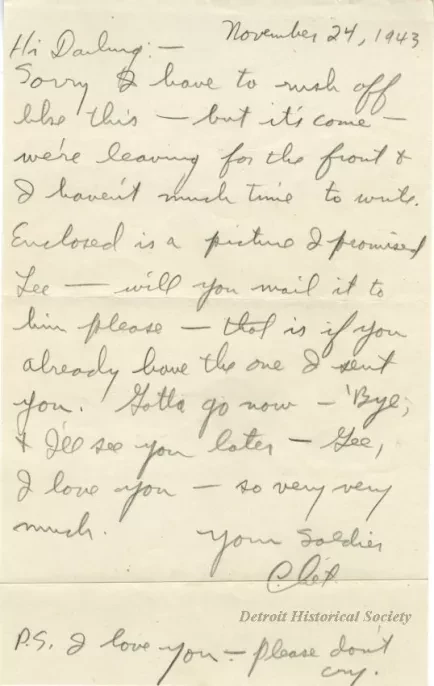 November 24, 1943
Hi Darling: —
Sorry I have to rush off
like this — but it's come —
we're leaving for the front &
I haven't much time to write.
Enclosed is a picture I promised
Lee — will you mail it to
him please — that is if you
already have the one I sent
you. Gotta go now — 'Bye,
& I'll see you later — Gee,
I love you — so very very
much.
Your Soldier
Chet
Detroit Historical Society
P.S. I love you — please don't
cry.